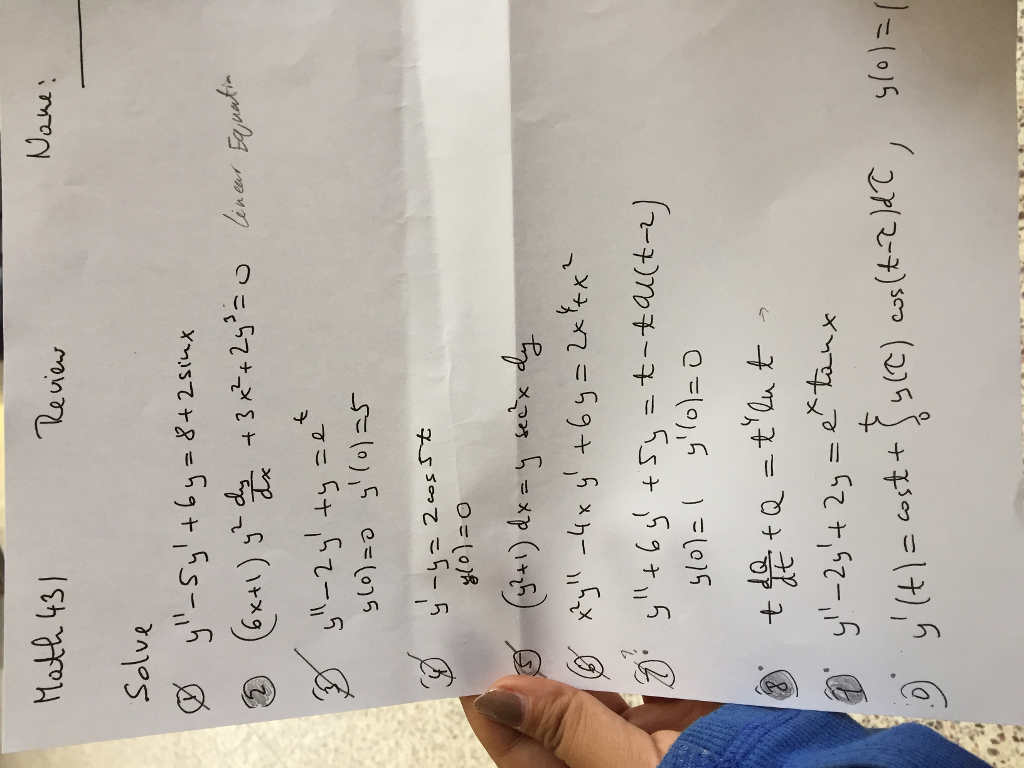 Math 431 Review Name:
Solve
1 y'' - 5y' + 6y = 8 + 2 sin x
2 (6x+1) y² dy/dx + 3x² + 2y³ = 0 Linear Equation
3 y'' - 2y' + y = e^t
y(0) = 0 y'(0) = 5
4 y' - y = 2 cos 5t
y(0) = 0
5 (y²+1) dx = y sec²x dy
6 x²y'' - 4xy' + 6y = 2x⁴ + x²
7? y'' + 6y' + 5y = t - t U(t-2)
y(0) = 1 y'(0) = 0
8. t dQ/dt + Q = t⁴ ln t →
9. y'' - 2y' + 2y = e^x tan x
10) y'(t) = cos t + ∫₀^t y(τ) cos(t-τ) dτ, y(0) = 1